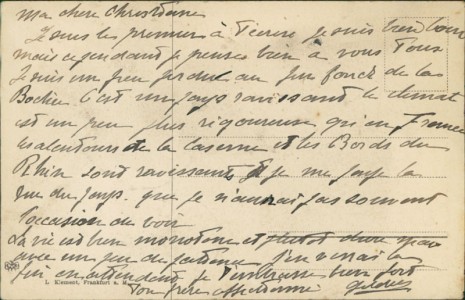 ma chere Christiane
je suis bien loin
mais cependant je penses bien à vous Tous
Je suis un peu perdue au fin fond de la
Bochie C'est un pays ravissant le climat
est un peu plus rigoureuse qu'en France
les alentours de la caserne et les Bords du
Rhin sont ravissants et je me paye la
vue du pays que je n'aurai pas souvent
l'occasion de voir
La vie est bien monotone et plutot dure mais
avec un peu de patience j'en verrai la
fin en attendant je t'embrasse bien fort
Ton frère
L. Klement, Frankfurt a. M.